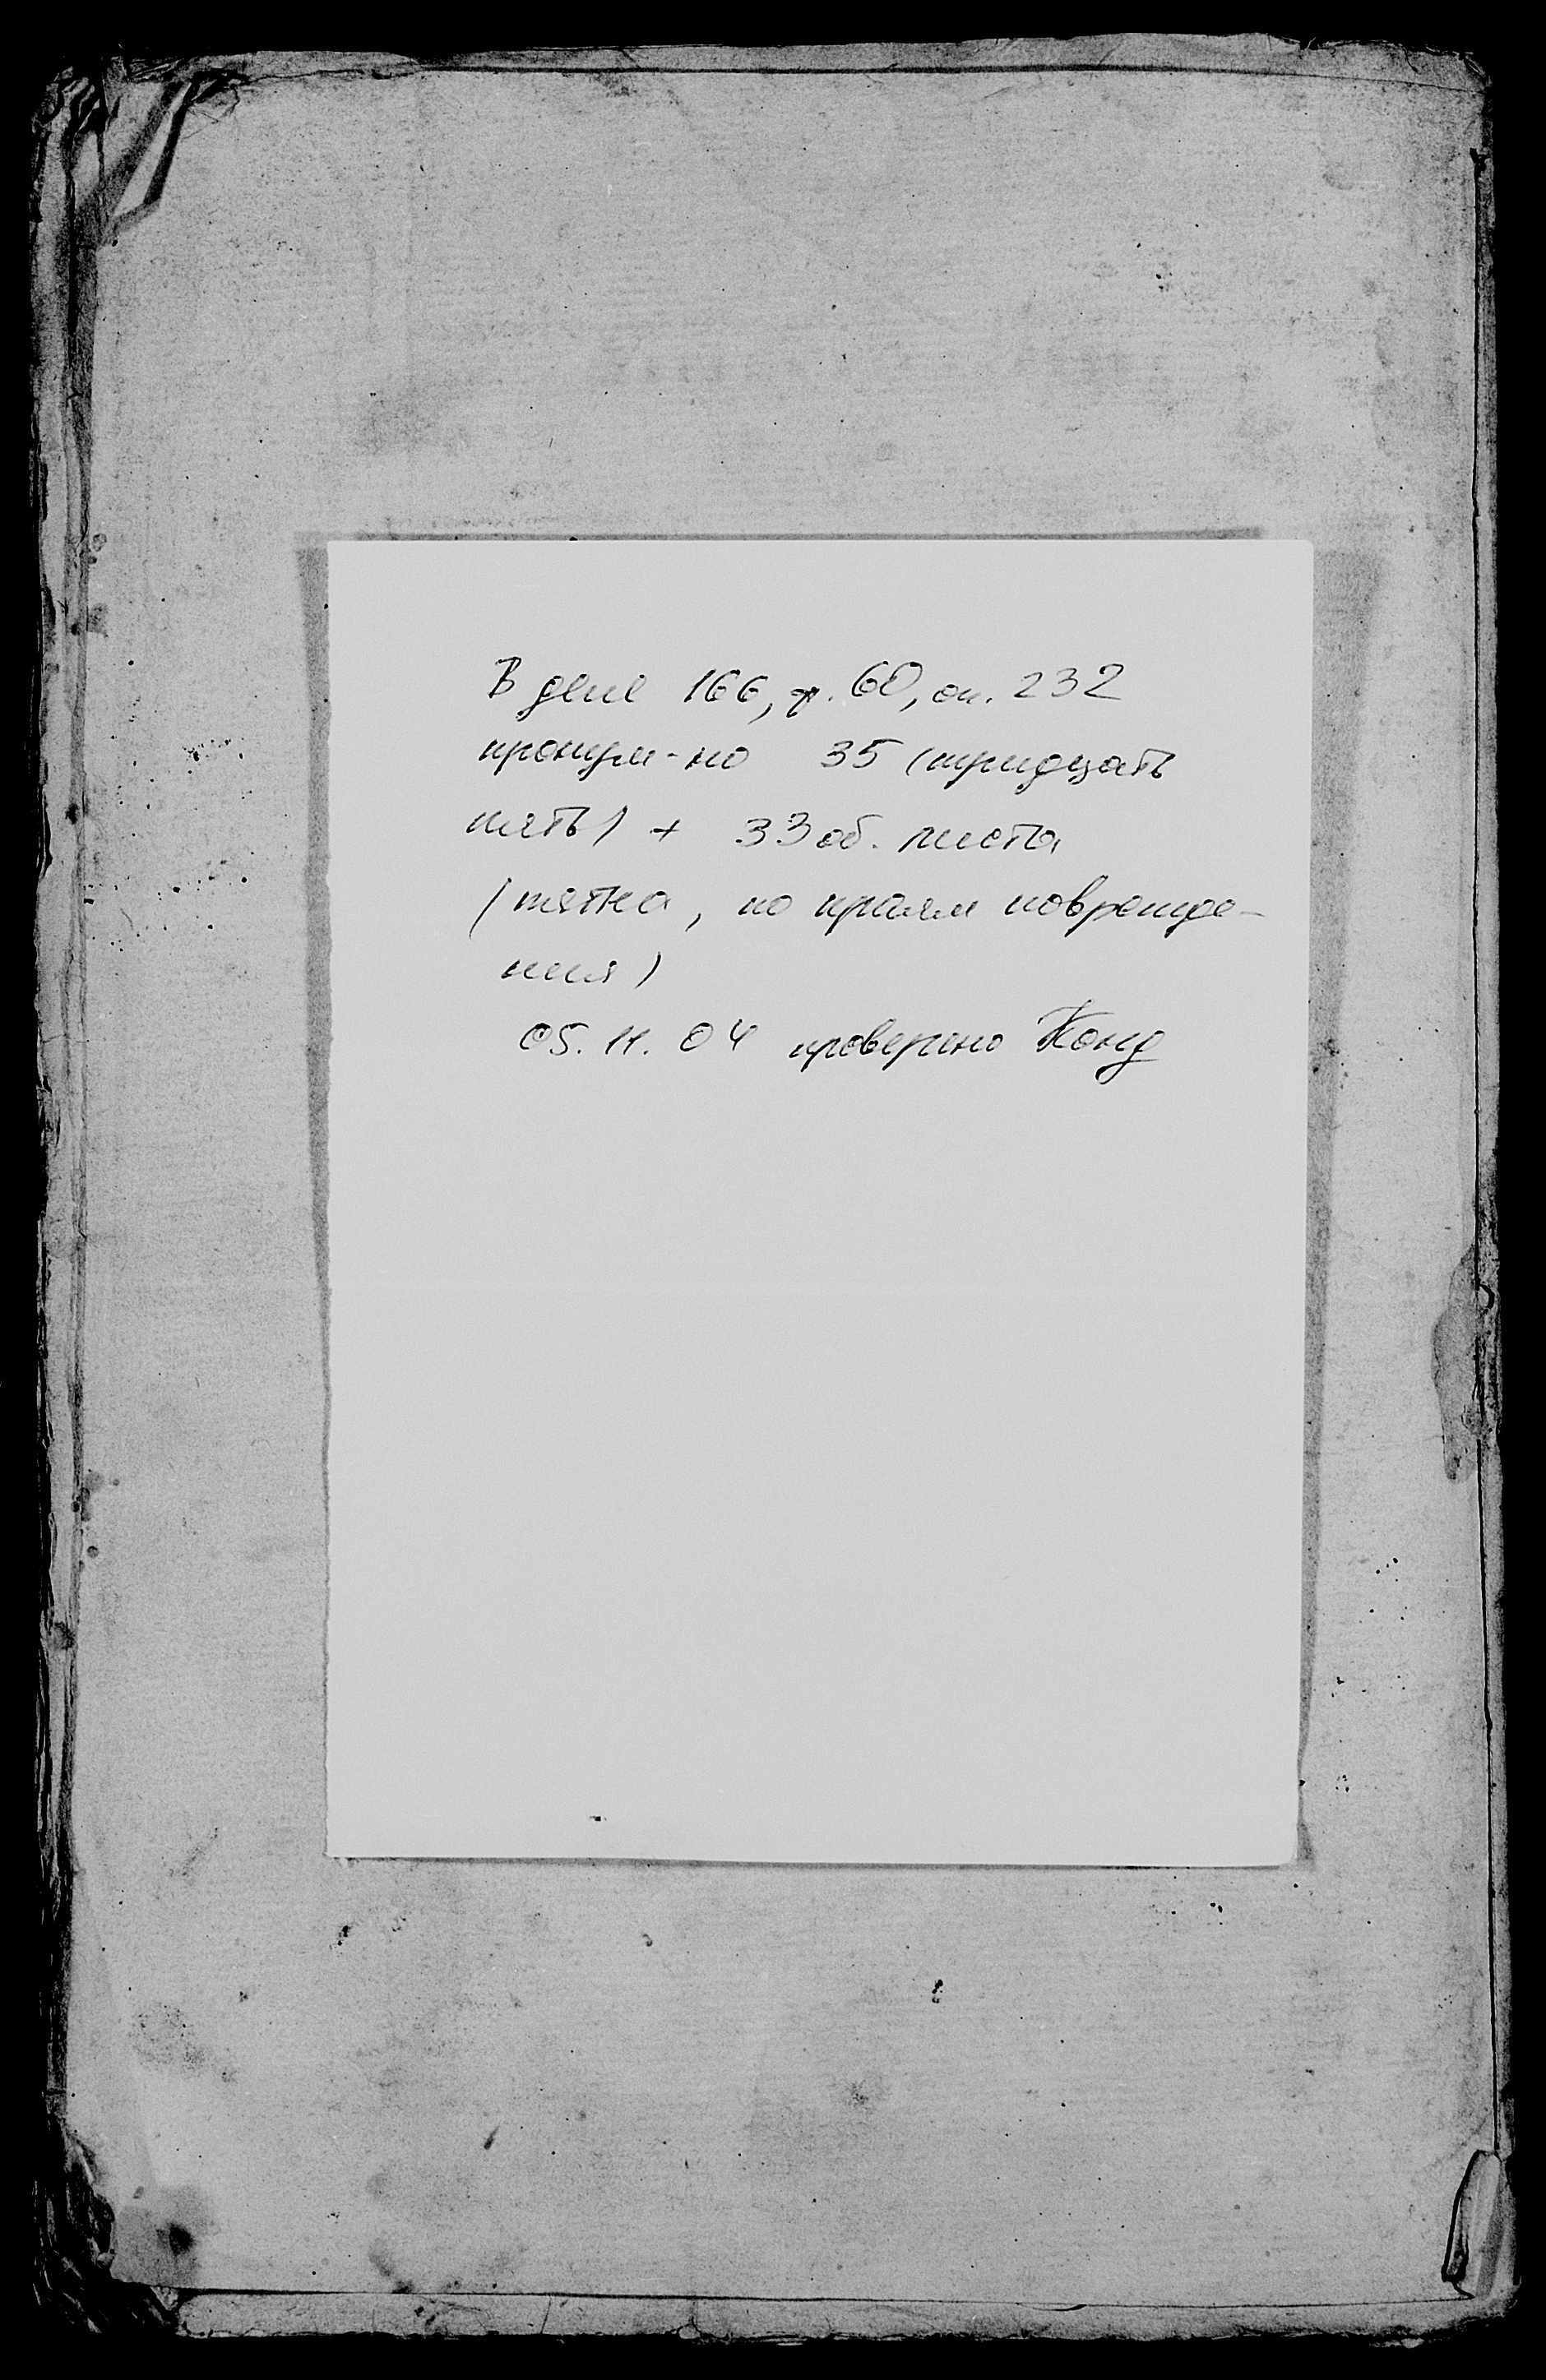 В деле 166, ф. 60, оп. 232
пронум-но 35 (тридцать
пять) + 33 об. листа
(пятна, по краям поврежде-
ния)
05.11.04 проверено Конд